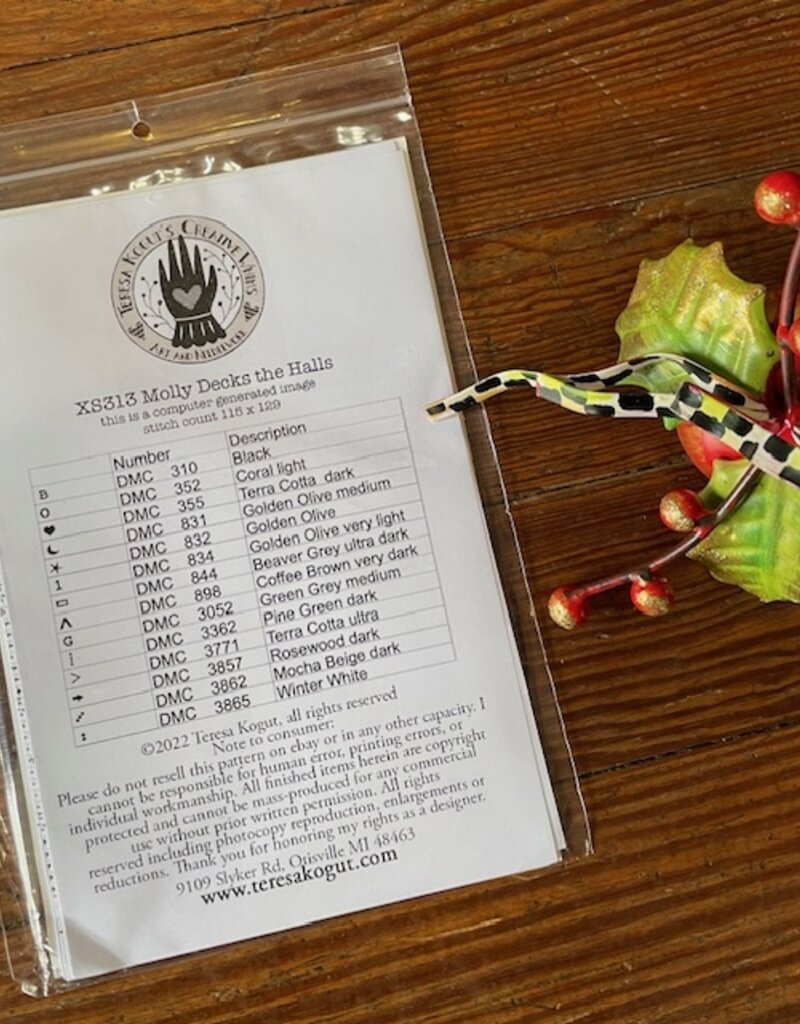 TERESA KOGUT'S CREATIVE
ART AND NEEDLEWORK
XS313 Molly Decks the Halls
this is a computer generated image
stitch count 115 x 129
Number Description
B DMC 310 Black
O DMC 352 Coral light
♥ DMC 355 Terra Cotta dark
☾ DMC 831 Golden Olive medium
* DMC 832 Golden Olive
1 DMC 834 Golden Olive very light
▭ DMC 844 Beaver Grey ultra dark
∧ DMC 898 Coffee Brown very dark
G DMC 3052 Green Grey medium
| DMC 3362 Pine Green dark
> DMC 3771 Terra Cotta ultra
→ DMC 3857 Rosewood dark
DMC 3862 Mocha Beige dark
: DMC 3865 Winter White
©2022 Teresa Kogut, all rights reserved
Note to consumer:
Please do not resell this pattern on ebay or in any other capacity. I
cannot be responsible for human error, printing errors, or
individual workmanship. All finished items herein are copyright
protected and cannot be mass-produced for any commercial
use without prior written permission. All rights
reserved including photocopy reproduction, enlargements or
reductions. Thank you for honoring my rights as a designer.
9109 Slyker Rd, Otisville MI 48463
www.teresakogut.com